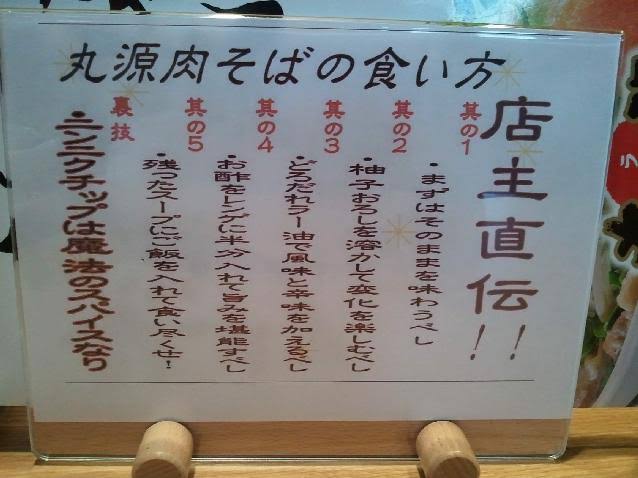 丸源肉そばの食い方
店主直伝!!
其の1
・まずはそのままを味わうべし
其の2
・柚子おろしを溶かして変化を楽しむべし
其の3
・どろだれラー油で風味と辛味を加えるべし
其の4
・お酢をレンゲに半分入れて旨みを堪能すべし
其の5
・残ったスープにご飯を入れて食い尽くせ!
裏技
・ニンニクチップは魔法のスパイスなり
ラ